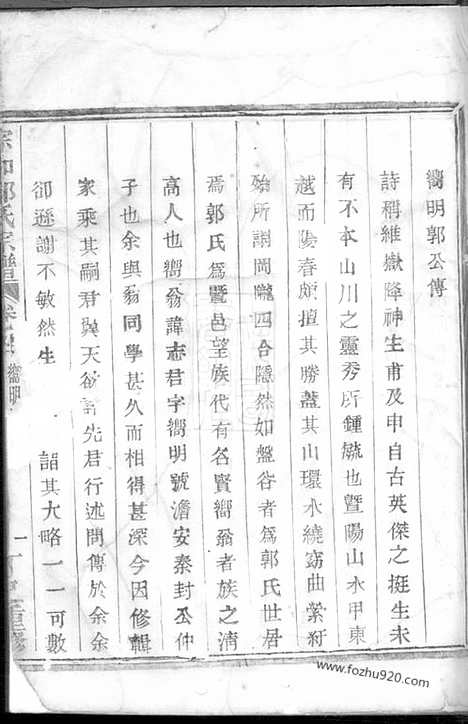 嚮明郭公傳
詩稱維嶽降神生甫及申自古英傑之挺生未
有不本山川之靈秀所鍾毓也暨陽山水甲東
越而陽春頗擅其勝蓋其山環水繞窈曲縈紆
殆所謂岡隴四合隱然如盤谷者為郭氏世居
焉郭氏為暨邑望族代有名賢嚮翁者族之清
高人也嚮翁諱志君字嚮明號澹安泰封公仲
子也余與翁同學甚久而相得甚深今因修輯
家乘其嗣君與天欲誌先君行述問傳於余余
卻遜謝不敏然生 詣其大略一一可數
郭氏宗譜
嚮明
www.fozhu920.com